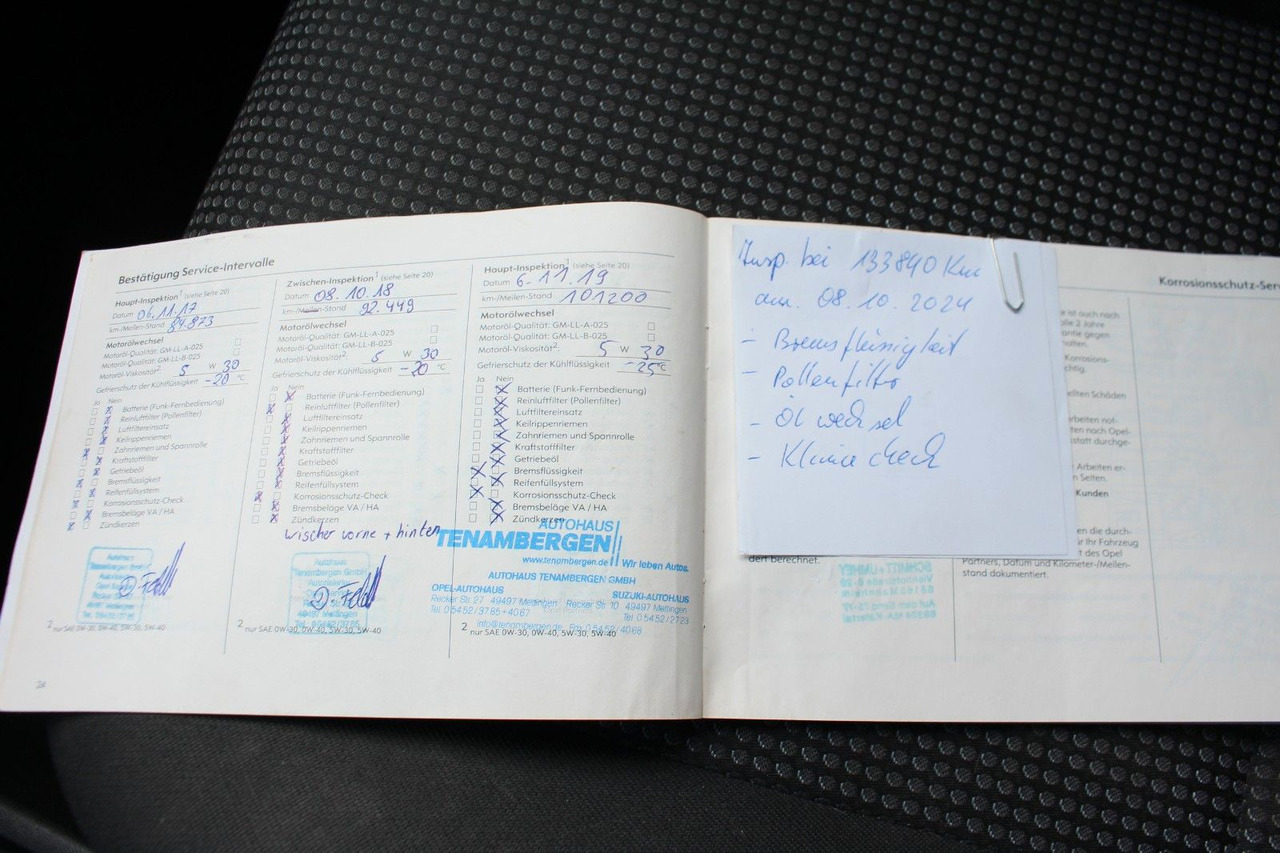 Bestätigung Service-Intervalle
Haupt-Inspektion¹ (siehe Seite 20)
Datum 06.11.17
km-/Meilen-Stand 84.873
Motorölwechsel
Motoröl-Qualität: GM-LL-A-025
Motoröl-Qualität: GM-LL-B-025
Motoröl-Viskosität² 5 W 30
Gefrierschutz der Kühlflüssigkeit -20 °C
Ja Nein
Batterie (Funk-Fernbedienung)
Reinluftfilter (Pollenfilter)
Luftfiltereinsatz
Keilrippenriemen
Zahnriemen und Spannrolle
Kraftstofffilter
Getriebeöl
Bremsflüssigkeit
Reifenfüllsystem
Korrosionsschutz-Check
Bremsbeläge VA / HA
Zündkerzen
Autohaus
49497 Mettingen
² nur SAE 0W-30, 0W-40, 5W-30, 5W-40
Zwischen-Inspektion¹ (siehe Seite 20)
Datum 08.10.18
km-/Meilen-Stand 92.449
Motorölwechsel
Motoröl-Qualität: GM-LL-A-025
Motoröl-Qualität: GM-LL-B-025
Motoröl-Viskosität² 5 W 30
Gefrierschutz der Kühlflüssigkeit -20 °C
Ja Nein
Batterie (Funk-Fernbedienung)
Reinluftfilter (Pollenfilter)
Luftfiltereinsatz
Keilrippenriemen
Zahnriemen und Spannrolle
Kraftstofffilter
Getriebeöl
Bremsflüssigkeit
Reifenfüllsystem
Korrosionsschutz-Check
Bremsbeläge VA / HA
Zündkerzen
wischer vorne + hinten
Autohaus
Tenambergen GmbH
49497 Mettingen
² nur SAE 0W-30, 0W-40, 5W-30, 5W-40
Haupt-Inspektion¹ (siehe Seite 20)
Datum 6.11.19
km-/Meilen-Stand 101200
Motorölwechsel
Motoröl-Qualität: GM-LL-A-025
Motoröl-Qualität: GM-LL-B-025
Motoröl-Viskosität² 5 W 30
Gefrierschutz der Kühlflüssigkeit -25 °C
Ja Nein
Batterie (Funk-Fernbedienung)
Reinluftfilter (Pollenfilter)
Luftfiltereinsatz
Keilrippenriemen
Zahnriemen und Spannrolle
Kraftstofffilter
Getriebeöl
Bremsflüssigkeit
Reifenfüllsystem
Korrosionsschutz-Check
Bremsbeläge VA / HA
Zündkerzen
AUTOHAUS
TENAMBERGEN
www.tenambergen.de Wir leben Autos.
AUTOHAUS TENAMBERGEN GMBH
OPEL-AUTOHAUS SUZUKI-AUTOHAUS
Recker Str. 27 49497 Mettingen Recker Str. 10 49497 Mettingen
Tel. 05452/3785+4067 Tel. 05452/2723
info@tenambergen.de Fax 05452/4068
² nur SAE 0W-30, 0W-40, 5W-30, 5W-40
Insp. bei 133840 Km
am. 08.10.2024
- Bremsflüssigkeit
- Pollenfilter
- Ölwechsel
- Klima check
dert berechnet.
Korrosionsschutz-Ser
Kunden
en die durch-
für Ihr Fahrzeug
t des Opel
Partners, Datum und Kilometer-/Meilen-
stand dokumentiert.